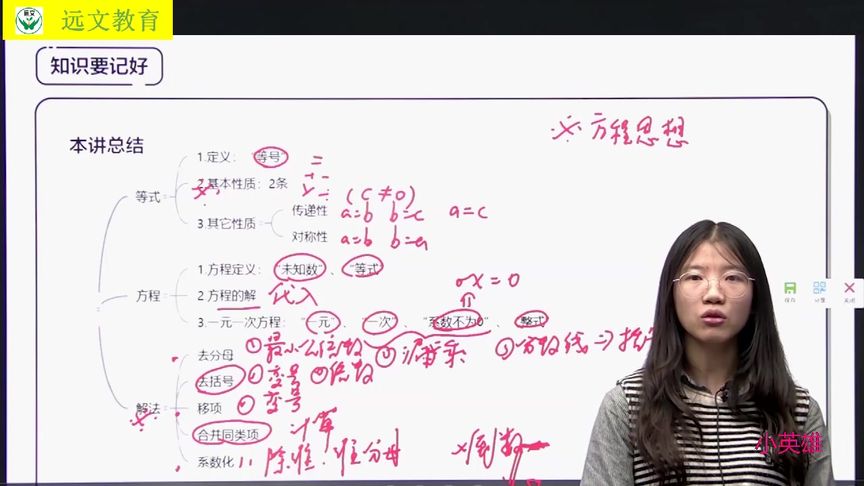 远文教育
知识要记好
本讲总结
※方程思想
等式
1.定义：“等号” =
2.基本性质：2条 + - × ÷ (c≠0)
3.其它性质
传递性 a=b b=c a=c
对称性 a=b b=a
方程
1.方程定义：“未知数”、“等式
2.方程的解 代入
0x=0
3.一元一次方程：“一元”、“一次”、“系数不为0”、“整式
解法
去分母 ①最小公倍数 ②漏乘 ③分数线⇒括
去括号 ①变号 ②倍数
移项 ①变号
合并同类项 计算
系数化1 除谁,谁分母 ×倒数
保存
关闭
小英雄